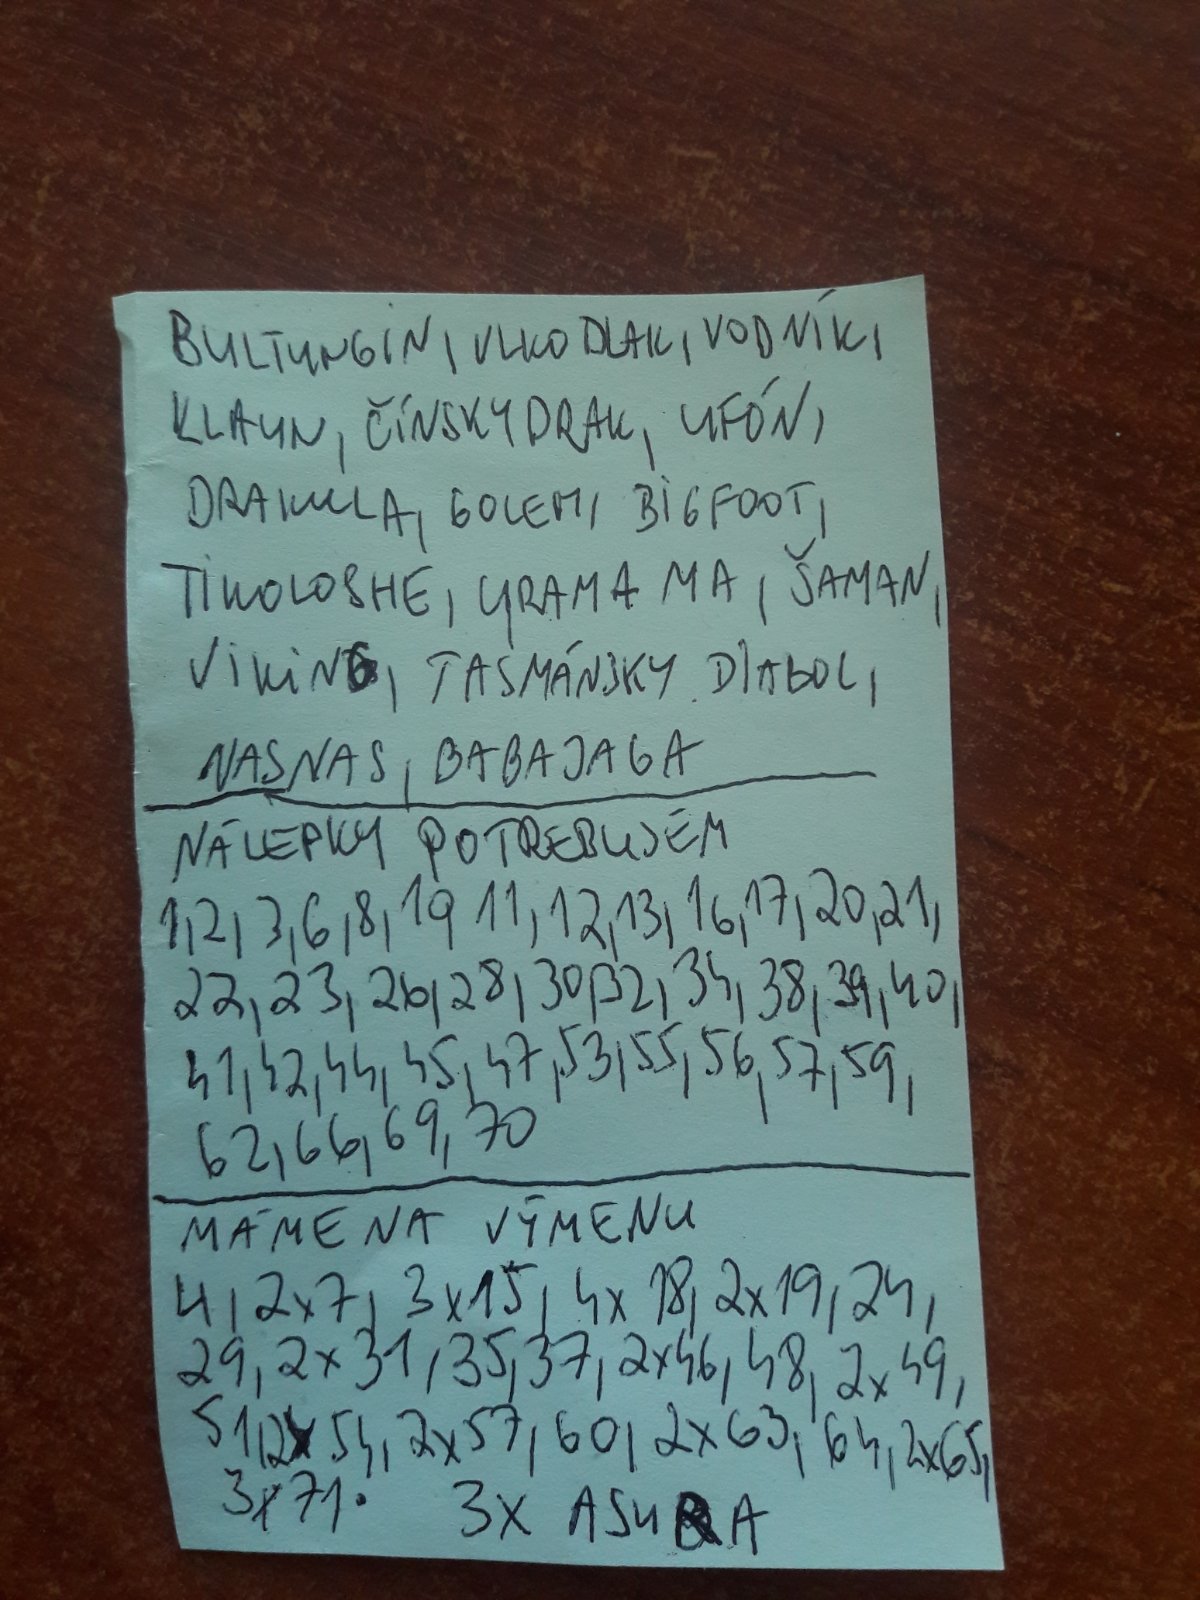 BULTUNGIN, VLKODLAK, VODNÍK,
KLAUN, ČÍNSKY DRAK, UFÓN,
DRAKULA, GOLEM, BIGFOOT,
TIKOLOSHE, YRAMA MA, ŠAMAN,
VIKING, TASMÁNSKY DIABOL,
NASNAS, BABAJAGA
NÁLEPKY POTREBUJEM
1, 2, 3, 6, 8, 10 11, 12, 13, 16, 17, 20, 21,
22, 23, 26, 28, 30, 32, 34, 38, 39, 40,
41, 42, 44, 45, 47, 53, 55, 56, 57, 59,
62, 66, 69, 70
MÁME NA VÝMENU
4, 2x7, 3x15, 4x18, 2x19, 24,
29, 2x31, 35, 37, 2x46, 48, 2x49,
51, 2x54, 2x57, 60, 2x63, 64, 2x65,
3x71. 3x ASURA